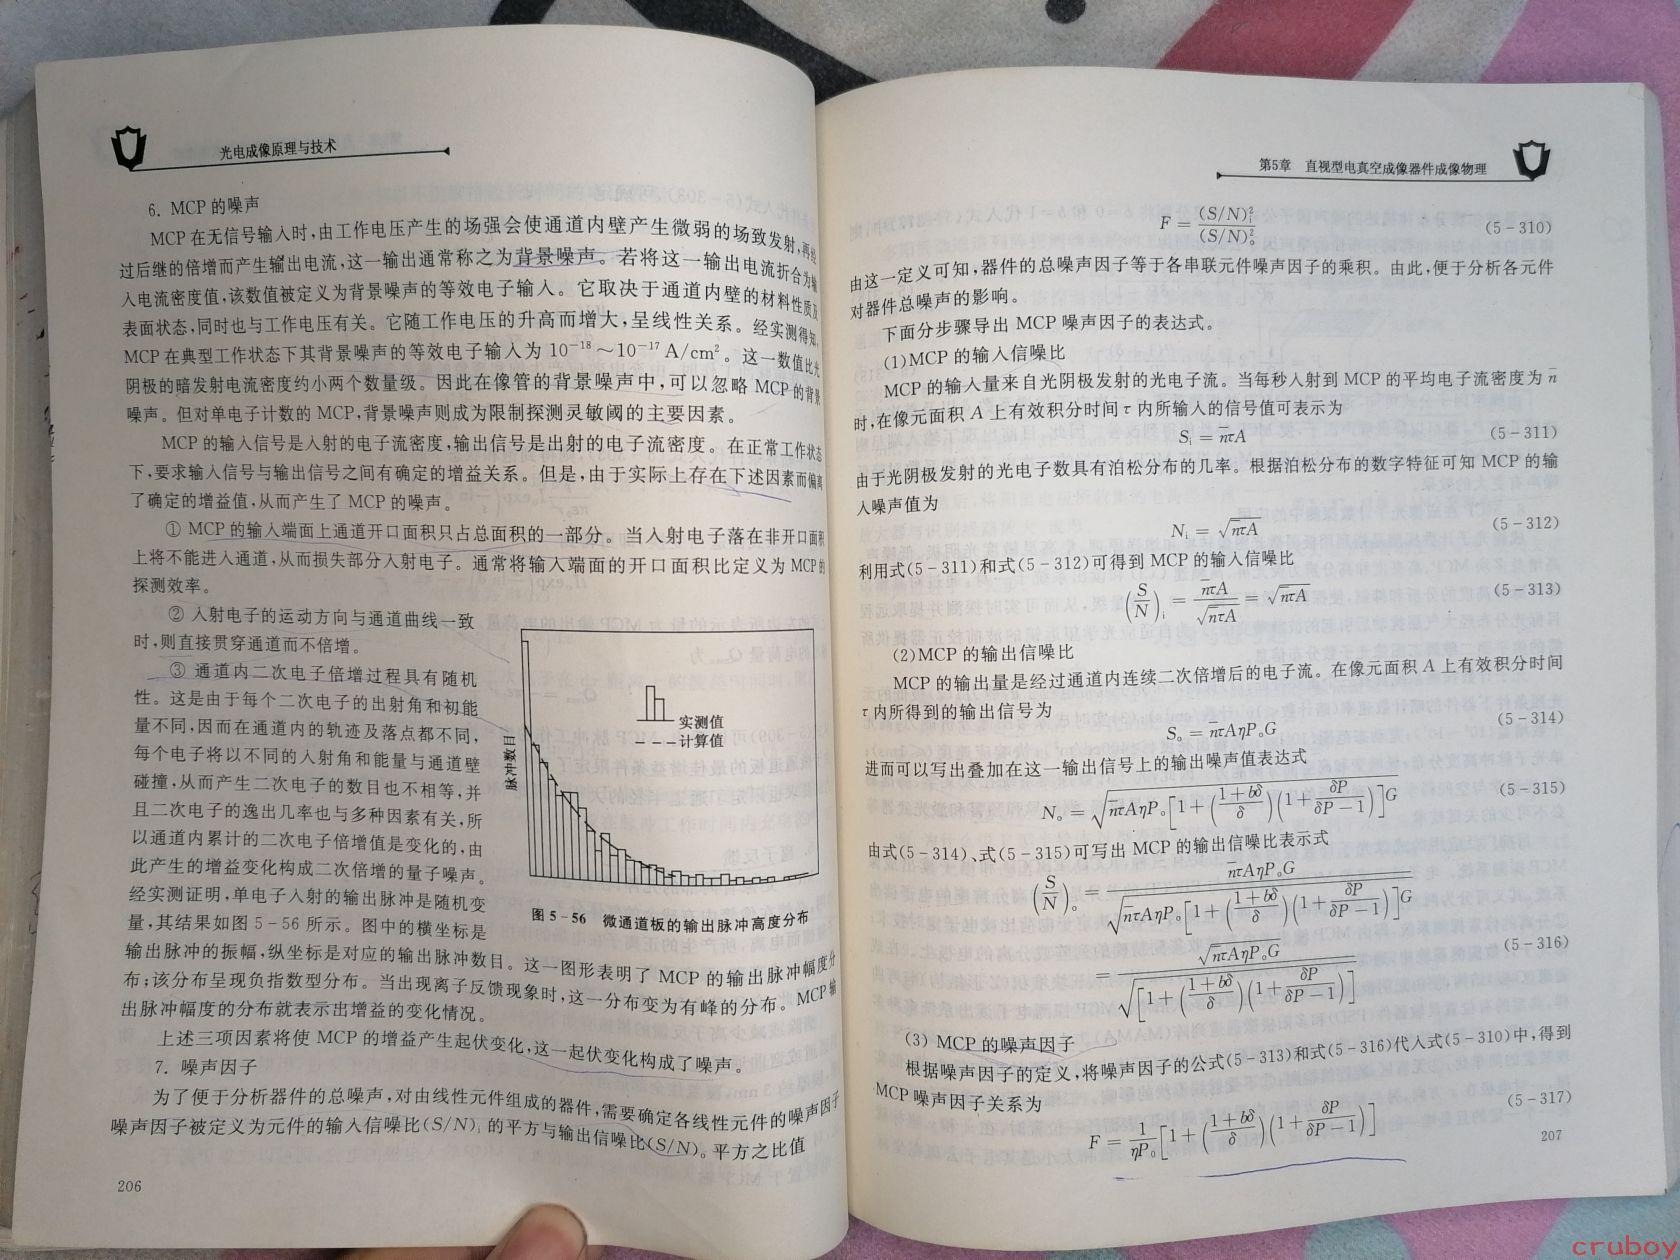 光电成像原理与技术
6. MCP 的噪声
MCP 在无信号输入时,由工作电压产生的场强会使通道内壁产生微弱的场致发射,再经
过后继的倍增而产生输出电流,这一输出通常称之为背景噪声。若将这一输出电流折合为输
入电流密度值,该数值被定义为背景噪声的等效电子输入。它取决于通道内壁的材料性质及
表面状态,同时也与工作电压有关。它随工作电压的升高而增大,呈线性关系。经实测得知,
MCP 在典型工作状态下其背景噪声的等效电子输入为 10⁻¹⁸～10⁻¹⁷ A/cm²。这一数值比光
阴极的暗发射电流密度约小两个数量级。因此在像管的背景噪声中,可以忽略 MCP 的背景
噪声。但对单电子计数的 MCP,背景噪声则成为限制探测灵敏阈的主要因素。
MCP 的输入信号是入射的电子流密度,输出信号是出射的电子流密度。在正常工作状态
下,要求输入信号与输出信号之间有确定的增益关系。但是,由于实际上存在下述因素而偏离
了确定的增益值,从而产生了 MCP 的噪声。
① MCP 的输入端面上通道开口面积只占总面积的一部分。当入射电子落在非开口面积
上将不能进入通道,从而损失部分入射电子。通常将输入端面的开口面积比定义为 MCP 的
探测效率。
② 入射电子的运动方向与通道曲线一致
时,则直接贯穿通道而不倍增。
③ 通道内二次电子倍增过程具有随机
性。这是由于每个二次电子的出射角和初能
量不同,因而在通道内的轨迹及落点都不同,
每个电子将以不同的入射角和能量与通道壁
碰撞,从而产生二次电子的数目也不相等,并
且二次电子的逸出几率也与多种因素有关,所
以通道内累计的二次电子倍增值是变化的,由
此产生的增益变化构成二次倍增的量子噪声。
经实测证明,单电子入射的输出脉冲是随机变
量,其结果如图 5-56 所示。图中的横坐标是
脉冲数目
实测值
计算值
图 5-56 微通道板的输出脉冲高度分布
输出脉冲的振幅,纵坐标是对应的输出脉冲数目。这一图形表明了 MCP 的输出脉冲幅度分
布;该分布呈现负指数型分布。当出现离子反馈现象时,这一分布变为有峰的分布。MCP 输
出脉冲幅度的分布就表示出增益的变化情况。
上述三项因素将使 MCP 的增益产生起伏变化,这一起伏变化构成了噪声。
7. 噪声因子
为了便于分析器件的总噪声,对由线性元件组成的器件,需要确定各线性元件的噪声因子
噪声因子被定义为元件的输入信噪比(S/N)ᵢ 的平方与输出信噪比(S/N)ₒ 平方之比值
206
第5章 直视型电真空成像器件成像物理
F = (S/N)ᵢ² / (S/N)ₒ² (5-310)
由这一定义可知,器件的总噪声因子等于各串联元件噪声因子的乘积。由此,便于分析各元件
对器件总噪声的影响。
下面分步骤导出 MCP 噪声因子的表达式。
(1)MCP 的输入信噪比
MCP 的输入量来自光阴极发射的光电子流。当每秒入射到 MCP 的平均电子流密度为 n̄
时,在像元面积 A 上有效积分时间 τ 内所输入的信号值可表示为
Sᵢ = n̄τA (5-311)
由于光阴极发射的光电子数具有泊松分布的几率。根据泊松分布的数字特征可知 MCP 的输
入噪声值为
Nᵢ = √(n̄τA) (5-312)
利用式(5-311)和式(5-312)可得到 MCP 的输入信噪比
(S/N)ᵢ = n̄τA / √(n̄τA) = √(n̄τA) (5-313)
(2)MCP 的输出信噪比
MCP 的输出量是经过通道内连续二次倍增后的电子流。在像元面积 A 上有效积分时间
τ 内所得到的输出信号为
Sₒ = n̄τAηPₒG (5-314)
进而可以写出叠加在这一输出信号上的输出噪声值表达式
Nₒ = √(n̄τAηPₒ[1+((1+bδ)/δ)(1+δP/(δP-1))]G (5-315)
由式(5-314)、式(5-315)可写出 MCP 的输出信噪比表示式
(S/N)ₒ = n̄τAηPₒG / √(n̄τAηPₒ[1+((1+bδ)/δ)(1+δP/(δP-1))]G
= √(n̄τAηPₒG / √([1+((1+bδ)/δ)(1+δP/(δP-1))] (5-316)
(3) MCP 的噪声因子
根据噪声因子的定义,将噪声因子的公式(5-313)和式(5-316)代入式(5-310)中,得到
MCP 噪声因子关系为
F = 1/(ηPₒ)[1+((1+bδ)/δ)(1+δP/(δP-1))] (5-317)
207
cruboy